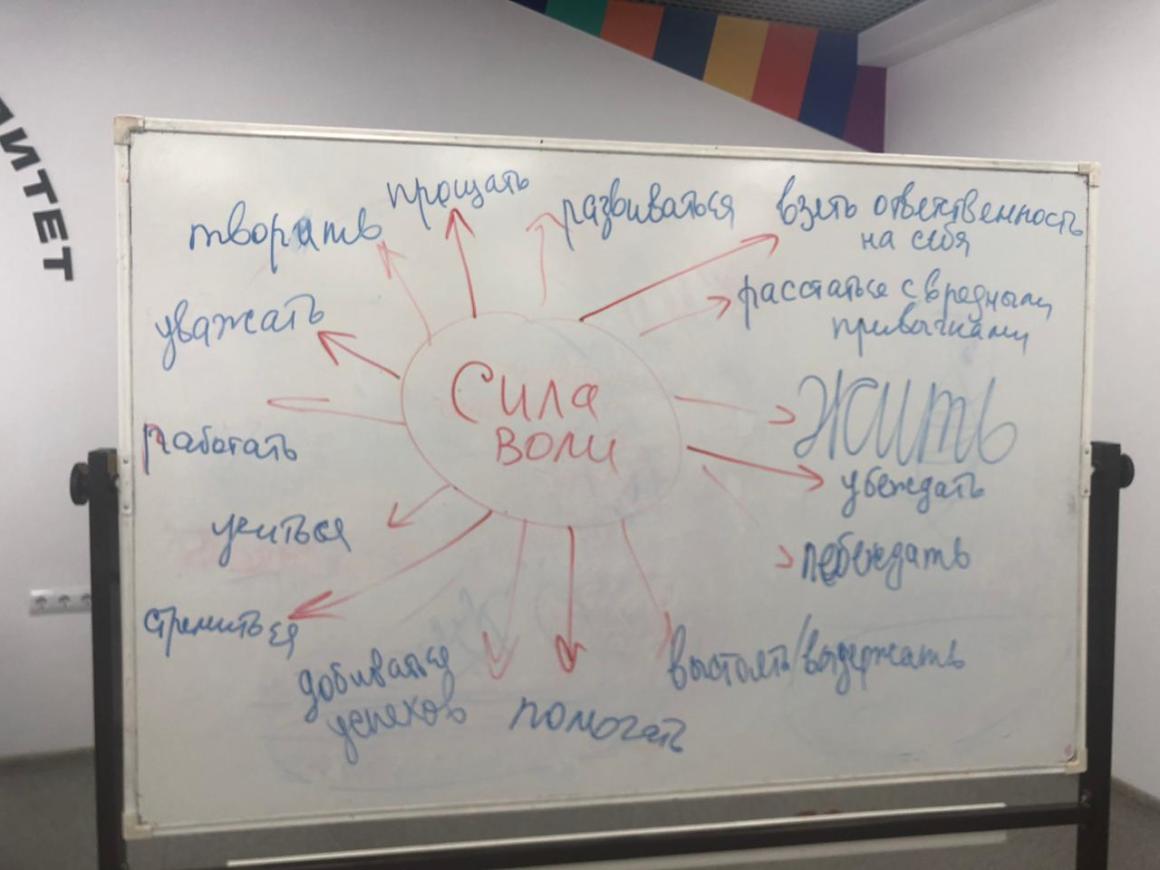 ИТЕТ
прощать
развиваться
взять ответственность
на себя
творить
расстаться с вредными
привычками
уважать
Сила
воли
Жить
работать
убеждать
учиться
побеждать
стремиться
добиваться
успехов
выстоять/выдержать
помогать